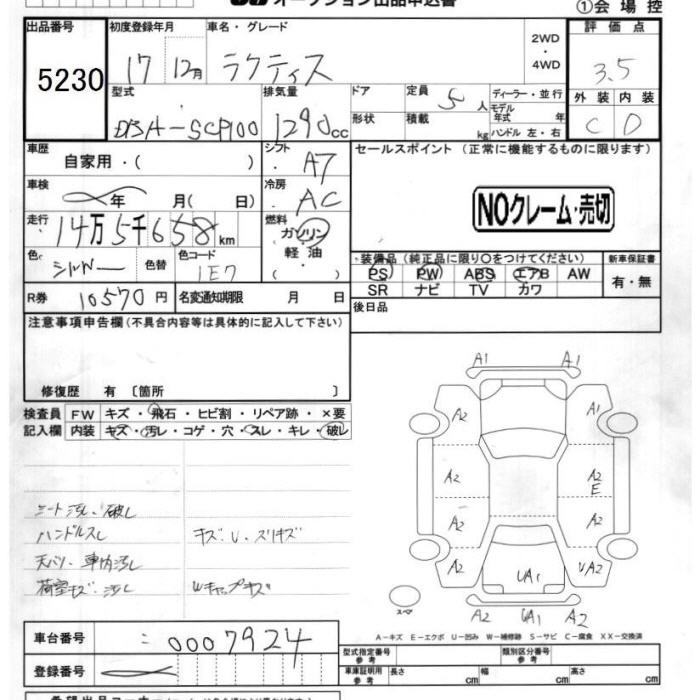 オークション出品申込書
①会場控
出品番号 初度登録年月 車名・グレード 2WD・4WD 評価点
5230 17 12月 ラクティス 3.5
型式 排気量 ドア 定員 5人 ディーラー・並行 外装 内装
DBA-SCP100 1290cc 形状 積載 kg モデル年式 年式 ハンドル 左・右 C D
車歴 シフト セールスポイント (正常に機能するものに限ります)
自家用・( ) AT
車検 年 月( 日) 冷房 AC
NOクレーム・売切
走行 14万5千658km 燃料 ガソリン・軽油・( )
色 シルバー 色替 色コード 1E7
装備品 (純正品に限り○をつけてください) 新車保証書
PS PW ABS エアB AW 有・無
SR ナビ TV カワ
R券 10570円 名変通知期限 月 日 後日品
注意事項申告欄 (不具合内容等は具体的に記入して下さい)
修復歴 有 〔箇所 〕
検査員 FW キズ・飛石・ヒビ割・リペア跡・×要
記入欄 内装 キズ・汚レ・コゲ・穴・スレ・キレ・破レ
シート汚レ・破レ
ハンドルスレ キズ・U・スリキズ
天バリ・車内汚レ
荷室キズ・汚レ Wキャップキズ
A1 A1
A2 A1
A2 A2
E
A2 A2
A2 UA1 UA2
スペア A2 UA1 A2
A-キズ E-エクボ U-凹み W-補修跡 S-サビ C-腐食 XX-交換済
車台番号 : 0007924
登録番号
型式指定番号 参考 類別区分番号 参考
車庫証明用 参考 長さ cm 幅 cm 高さ cm